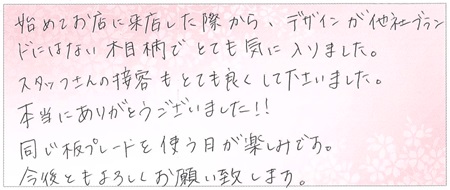 始めてお店に来店した際から、デザインが他社ブラン
ドにはない木目柄でとても気に入りました。
スタッフさんの接客もとても良くして下さいました。
本当にありがとうございました!!
同じ板プレートを使う日が楽しみです。
今後ともよろしくお願い致します。